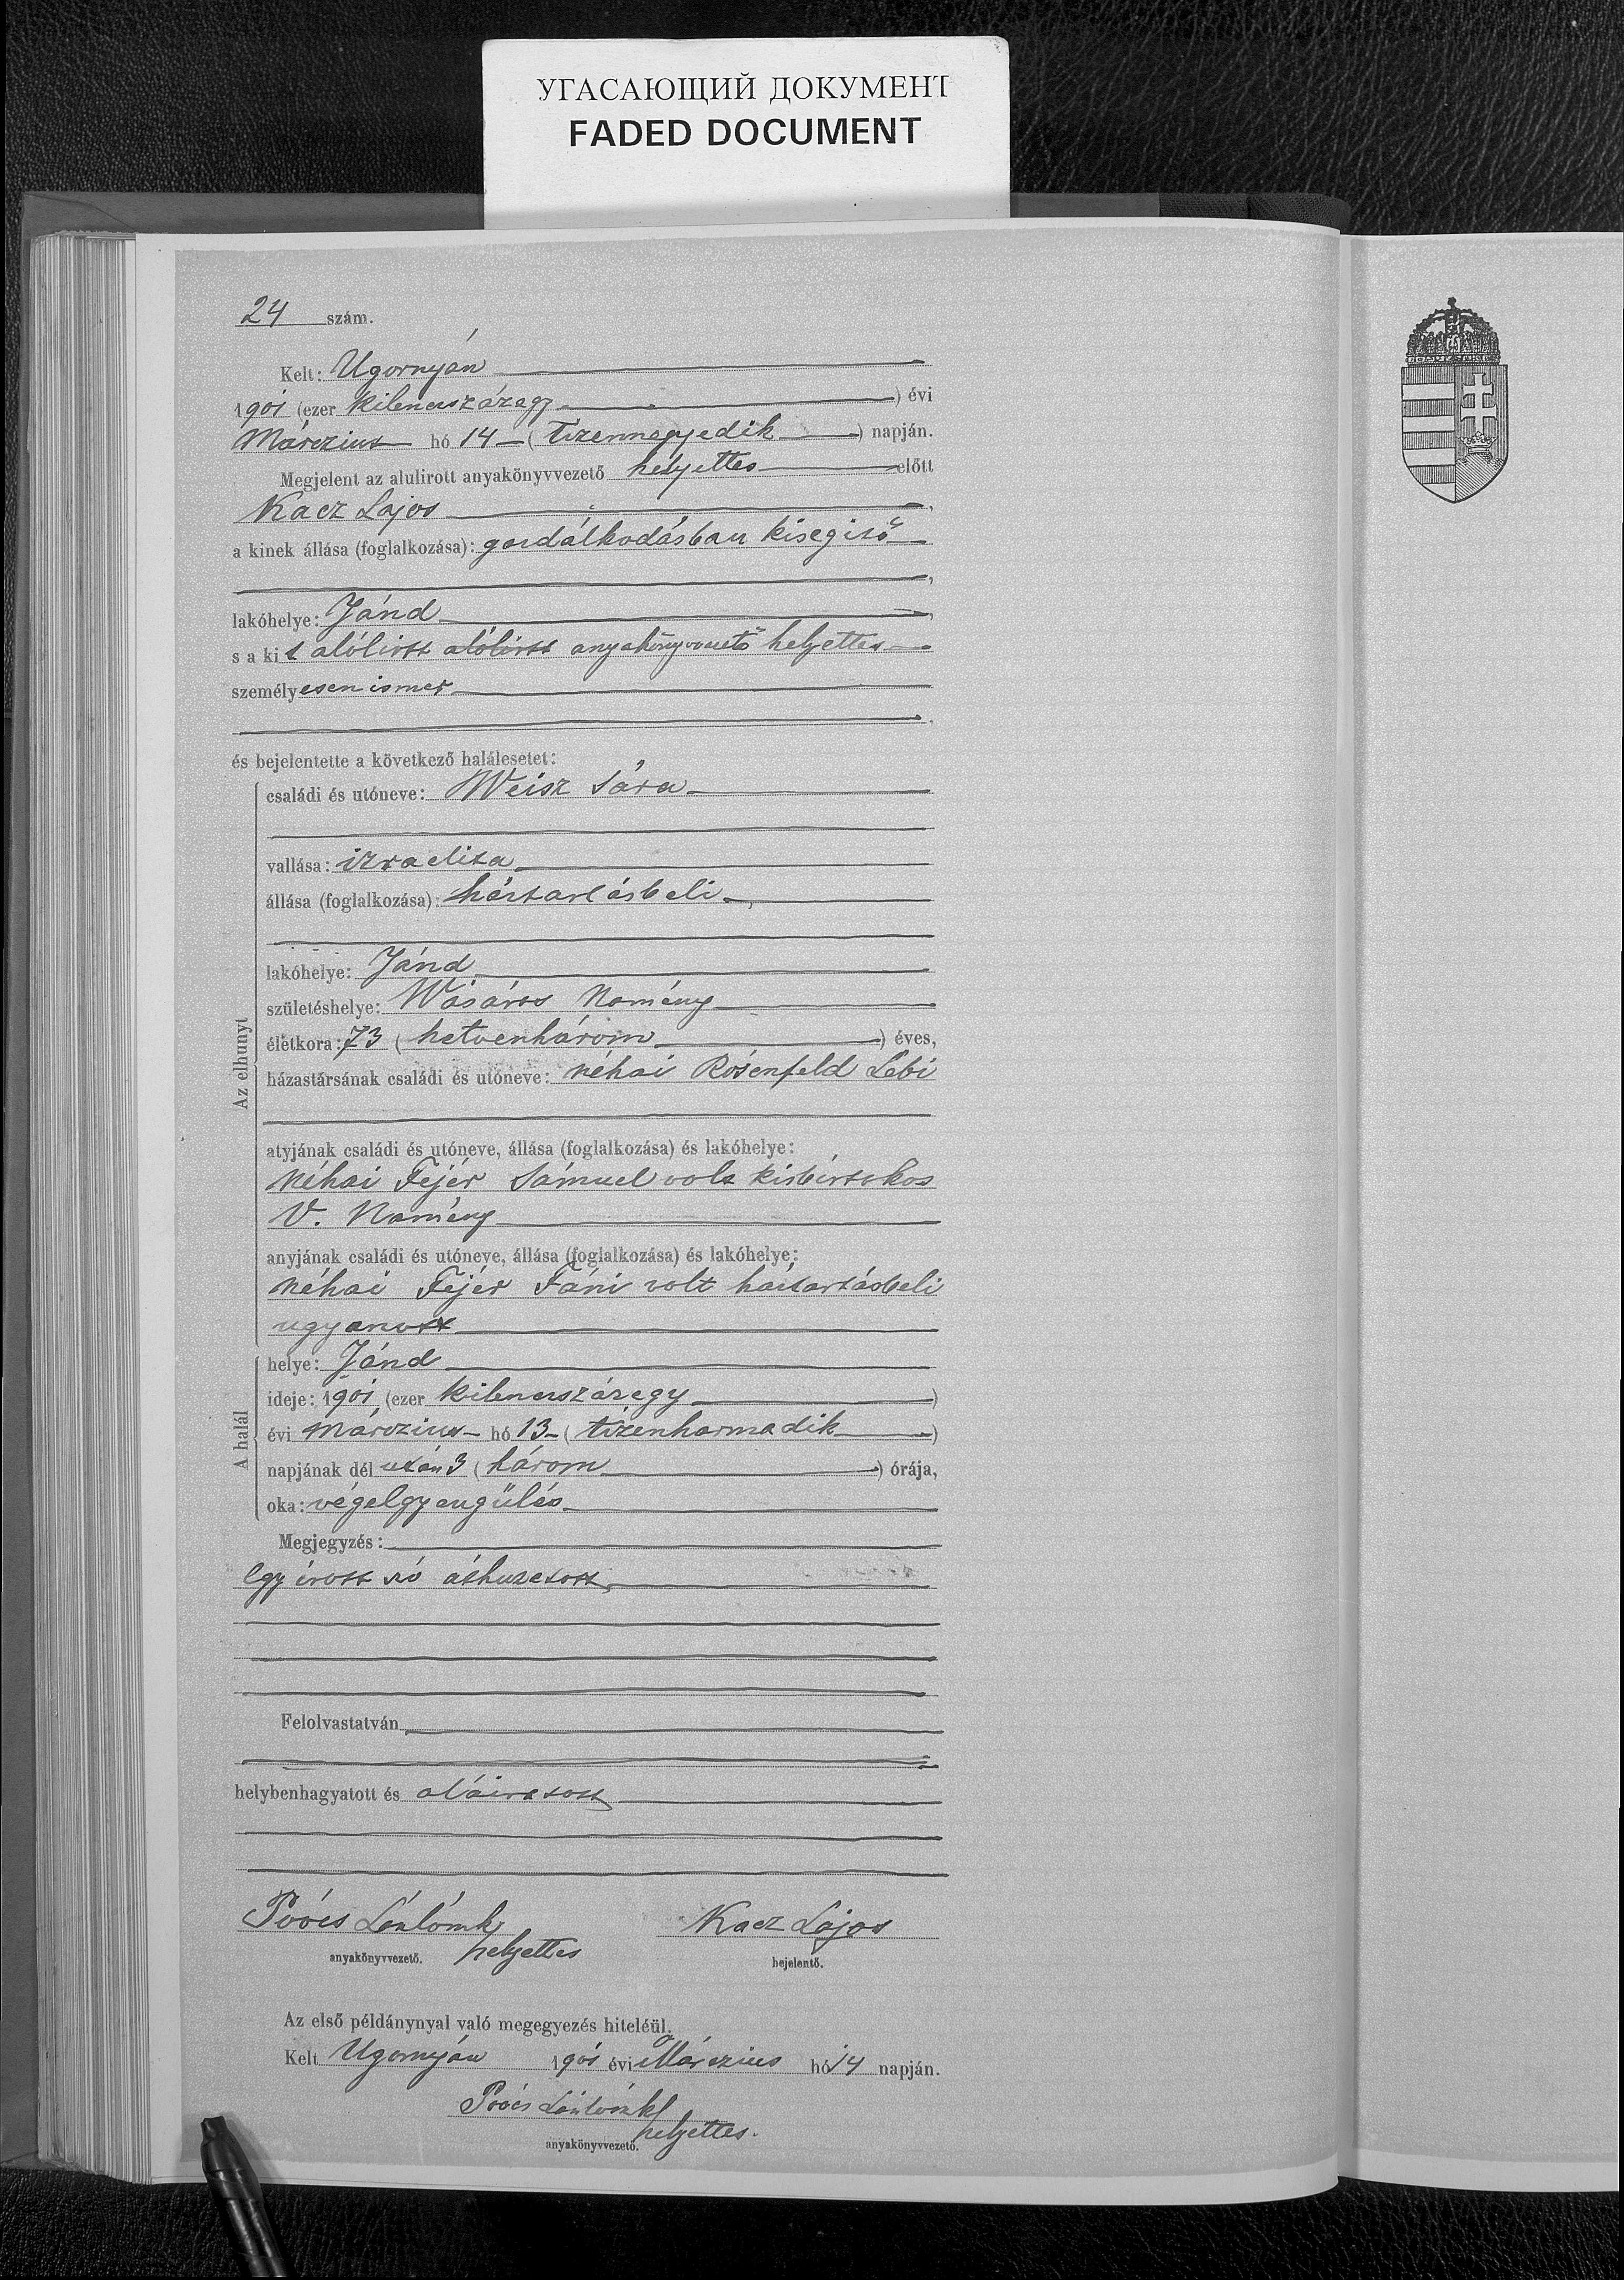 УГАСАЮЩИЙ ДОКУМЕНТ
FADED DOCUMENT
24 szám.
Kelt: Ugornyán
1901 (ezer kilenczszázegy) évi
Márczius hó 14 (tizennegyedik) napján.
Megjelent az alulirott anyakönyvvezető helyettes előtt
Kacz Lajos,
a kinek állása (foglalkozása): gazdálkodásban kisegitő
lakóhelye: Jánd,
s a kit alólirtt alólirtt anyakönyvvezető helyettes
személyesen ismer
és bejelentette a következő halálesetet:
Az elhunyt
családi és utóneve: Weisz Sára
vallása: izraelita
állása (foglalkozása): háztartásbeli
lakóhelye: Jánd
születéshelye: Vásáros Namény
életkora: 73 (hetvenhárom) éves,
házastársának családi és utóneve: néhai Rosenfeld Lebi
atyjának családi és utóneve, állása (foglalkozása) és lakóhelye:
néhai Fejér Sámuel volt kisbirtokos
V. Namény
anyjának családi és utóneve, állása (foglalkozása) és lakóhelye:
néhai Fejér Fáni volt háztartásbeli
ugyanott
A halál
helye: Jánd
ideje: 1901 (ezer kilenczszázegy)
évi Márczius hó 13 (tizenharmadik)
napjának dél után 3 (három) órája,
oka: végelgyengülés
Megjegyzés:
Egy irott szó áthuzatott
Felolvastatván
helybenhagyatott és aláiratott
helyettes Kacz Lajos
anyakönyvvezető. bejelentő.
Az első példánynyal való megegyezés hiteléül.
Kelt Ugornyán 1901 évi Márczius hó 14 napján.
helyettes.
anyakönyvvezető.